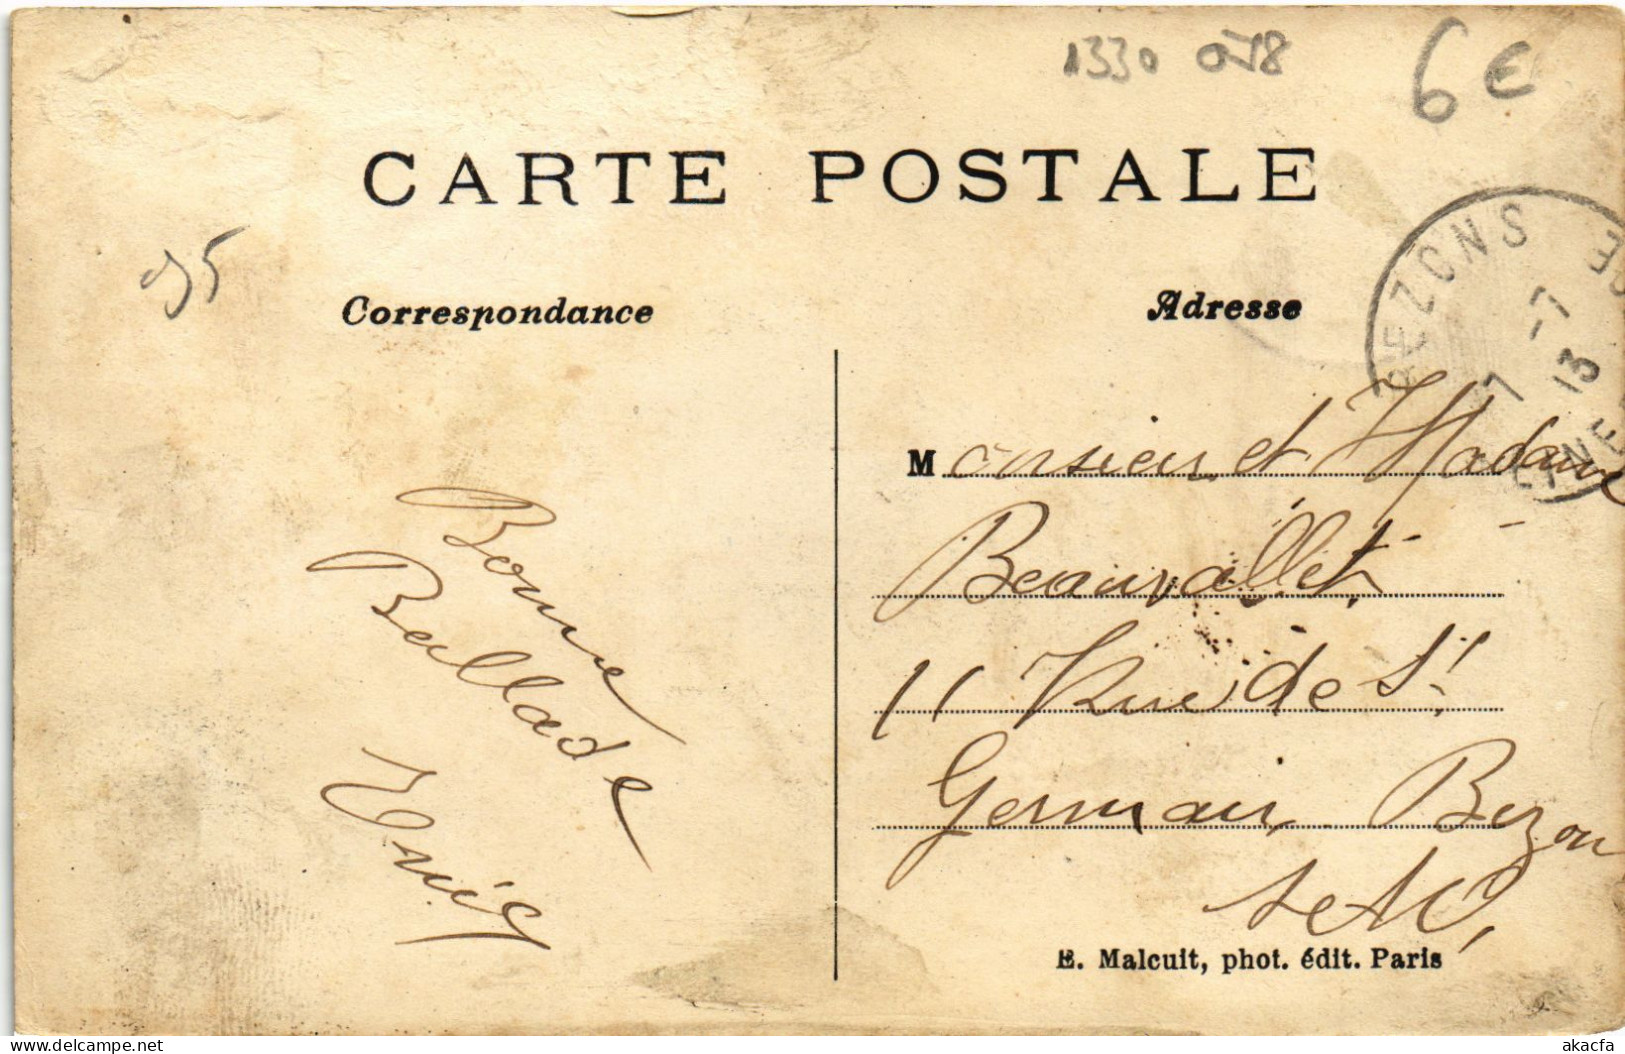 1330 078
6€
CARTE POSTALE
95
Correspondance
Adresse
BEZONS
7 -7
13
Monsieur et Madame
Beauvallet
11 Rue de St
Germain Bezon
S et O
Bonne
Ballade
E. Malcuit, phot. édit. Paris
akacfa